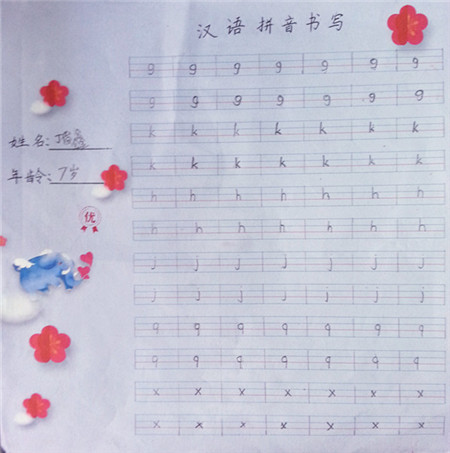 汉语拼音书写
g g g g g g g
g g g g g g g
k k k k k k k
姓名:
k k k k k k k
年龄:7岁
h h h h h h h
优
h h h h h h h
j j j j j j j
j j j j j j j
q q q q q q q
q q q q q q q
x x x x x x x
x x x x x x x